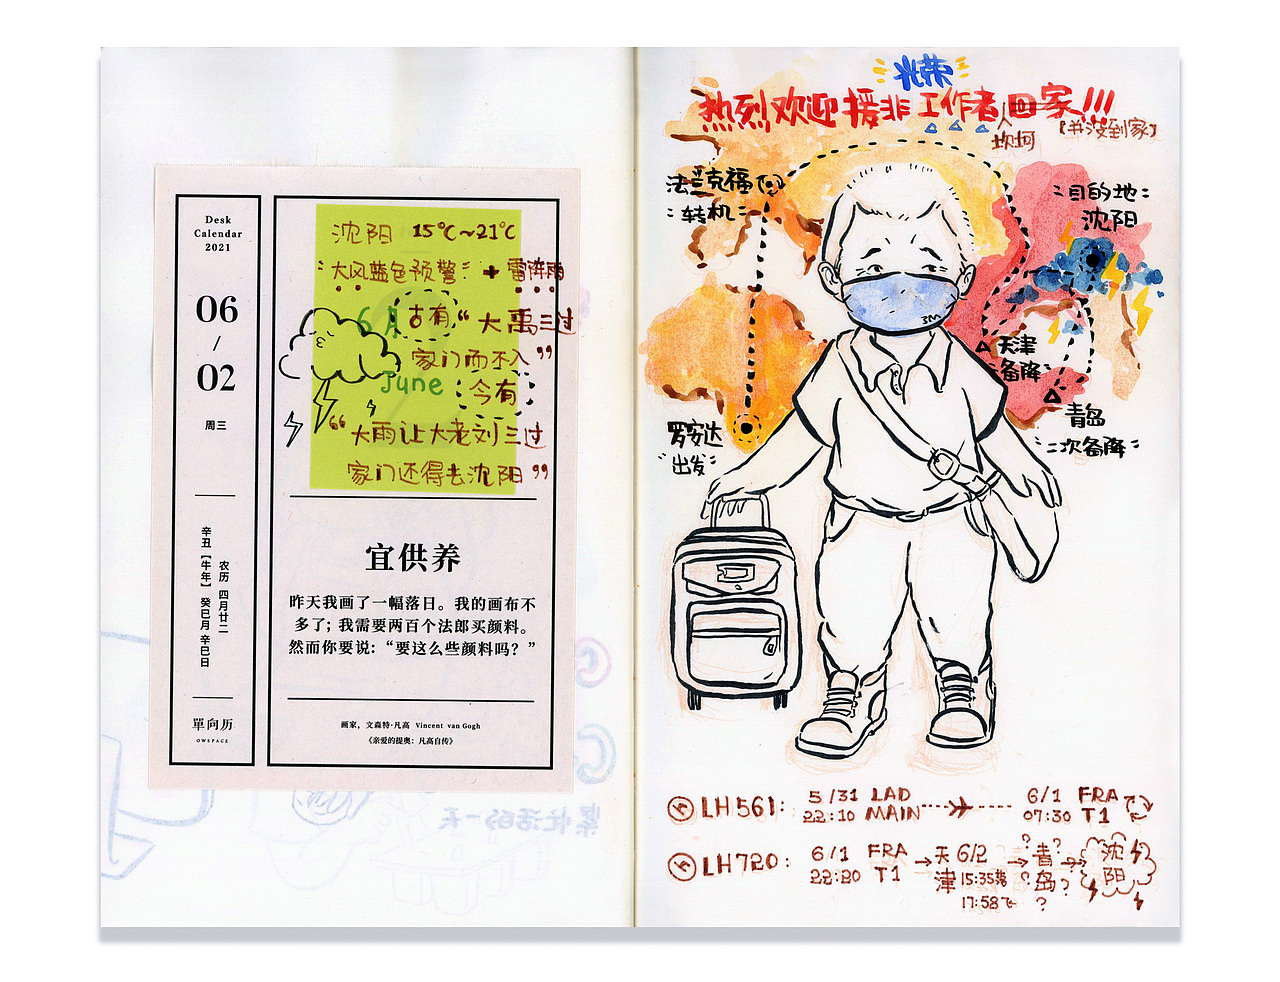 Desk
Calendar
2021
06
/
02
周三
农历 四月廿二
辛丑【牛年】癸巳月 辛巳日
單向历
OWSPACE
沈阳 15°C~21°C
"大风蓝色预警" + 雷阵雨
6月
古有“大禹三过
家门而不入”
June
今有
“大雨让大老刘三过
家门还得去沈阳”
宜供养
昨天我画了一幅落日。我的画布不
多了；我需要两百个法郎买颜料。
然而你要说：“要这么些颜料吗？”
画家，文森特·凡高 Vincent van Gogh
《亲爱的提奥：凡高自传》
光荣
热烈欢迎援非工作者回家!!!
坎坷
【并没到家】
法兰克福
转机
目的地
沈阳
3M
天津
备降
青岛
二次备降
罗安达
出发
LH561: 5/31 LAD 6/1 FRA
22:10 MAIN 07:30 T1
LH720: 6/1 FRA → 天津 6/2 → ?青岛? → 沈阳
22:20 T1 15:35落
17:58飞